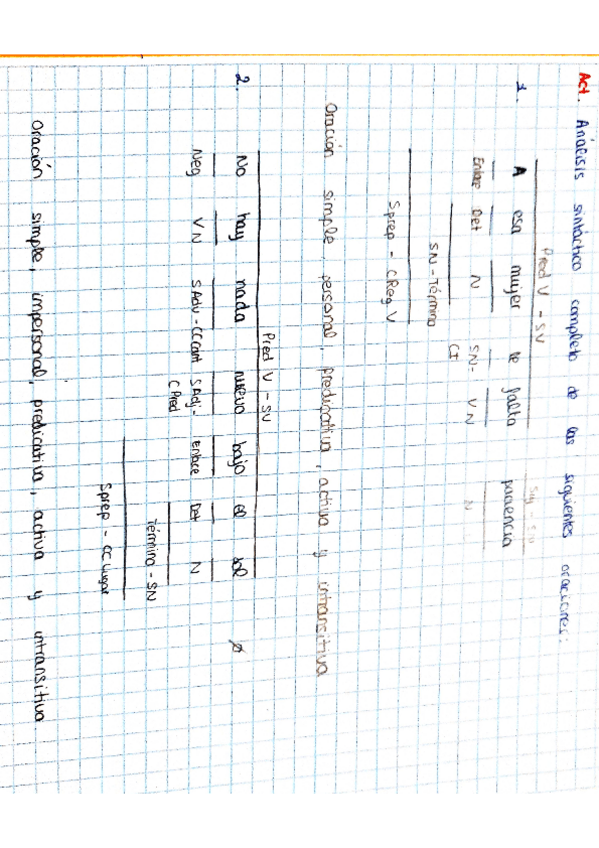 Act. Análisis sintáctico completo de las siguientes oraciones:
Pred V - SV
Suj - SN
1. A esa mujer le falta paciencia
Enlace Det N SN- V N N
CI
SN - Término
Sprep - C Reg V
Oración simple, personal, predicativa, activa y intransitiva
Pred V - SV
2. No hay nada nuevo bajo el sol ∅
Neg V N S Adv - CC Cant S Adj- Enlace Det N
C Pred
Término - SN
Sprep - CC Lugar
Oración simple, impersonal, predicativa, activa y intransitiva.